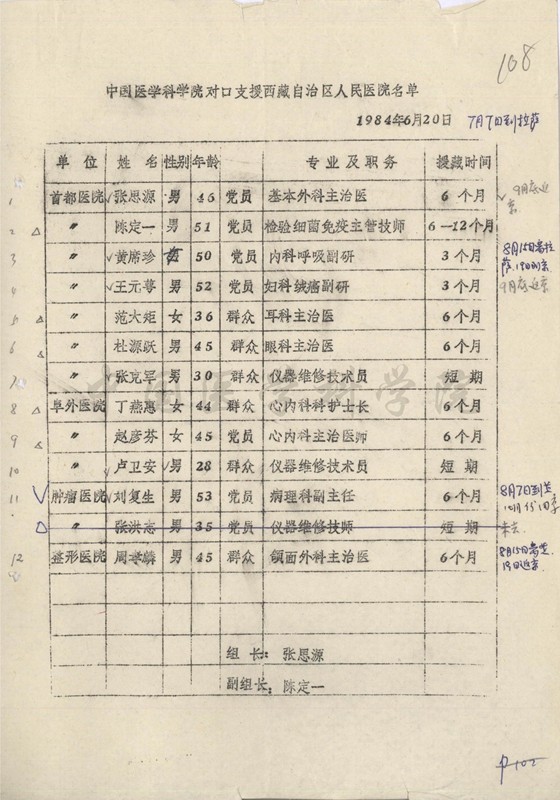 108
中国医学科学院对口支援西藏自治区人民医院名单
1984年6月20日 7月7日到拉萨
单位 姓名 性别 年龄 专业及职务 援藏时间
1 首都医院 张思源 男 46 党员 基本外科主治医 6个月 9月底返京
2 〃 陈定一 男 51 党员 检验细菌免疫主管技师 6—12个月
3 〃 黄席珍 女 50 党员 内科呼吸副研 3个月 8月15日离拉萨,19日到京
4 〃 王元萼 男 52 党员 妇科绒癌副研 3个月 9月底返京
5 〃 范大矩 女 36 群众 耳科主治医 6个月
6 〃 杜源跃 男 45 群众 眼科主治医 6个月
7 〃 张克军 男 30 群众 仪器维修技术员 短期
8 阜外医院 丁燕惠 女 44 群众 心内科科护士长 6个月
9 〃 赵彦芬 女 45 党员 心内科主治医师 6个月
10 〃 卢卫安 男 28 群众 仪器维修技术员 短期
11 肿瘤医院 刘复生 男 53 党员 病理科副主任 6个月 8月7日到
〃 张洪志 男 35 党员 仪器维修技师 短期 未去
12 整形医院 周孝麟 男 45 群众 颌面外科主治医 6个月 8月15日离 19日返京
组长:张思源
副组长:陈定一
P102
中国医学科学院